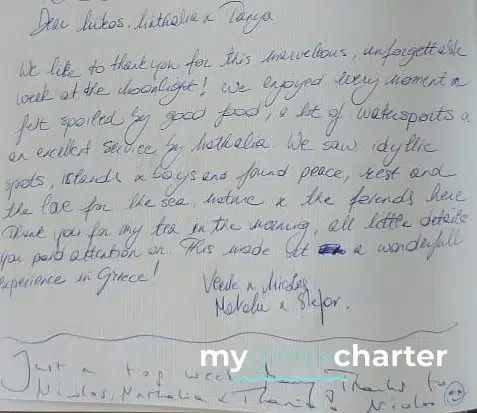 Dear Lukos, Nathalia & Tanya
We like to thank you for this marvellous, unforgettable
week at the Moonlight! We enjoyed every moment &
felt spoiled by good food, a lot of watersports &
an excellent service by Nathalia. We saw idyllic
spots, islands & bays and found peace, rest and
the love for the sea, nature & the friends here
Thank you for my tea in the morning, all little details
you paid attention on. This made it a wonderfull
experience in Greece!
& Nicolas
&
my greek charter
Just a top week Thanks to
Nicolas, Nathalia &